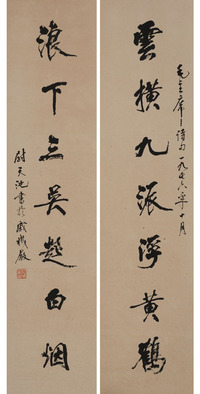 毛主席诗句一九七六年十月
雲橫九派浮黃鶴
浪下三吳起白烟
尉天池書於戚機厰